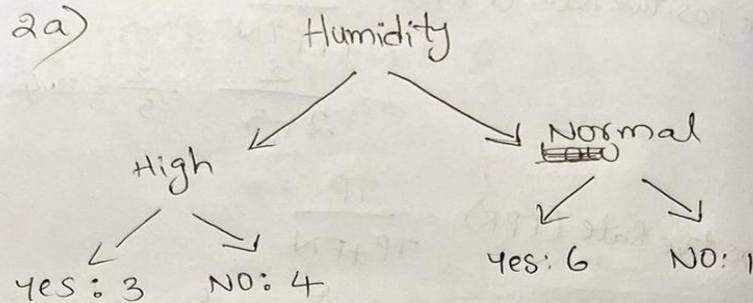 2a) Humidity
High Normal
yes: 3 NO: 4 Yes: 6 NO: 1